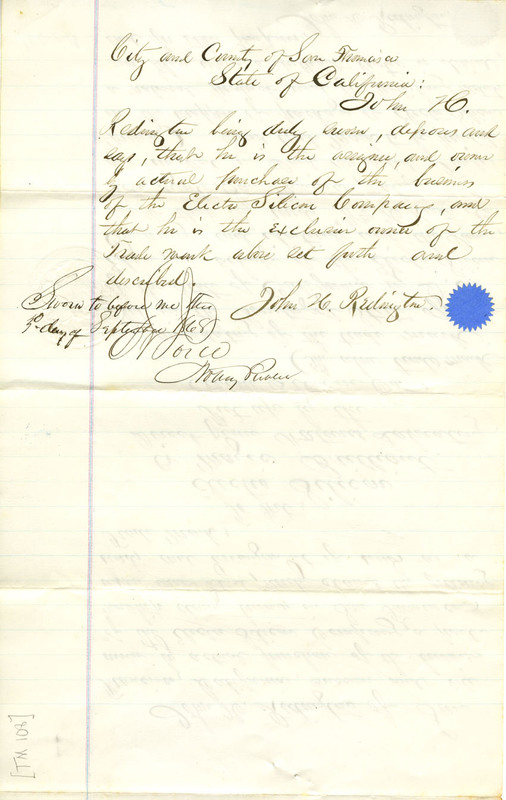 City and County of San Francisco
State of California:
John H.
Redington being duly sworn, deposes and
says, that he is the assignee, and owner
by actual purchase of the business
of the Electro Silicon Company, and
that he is the exclusive owner of the
Trade mark above set forth and
described.
John H. Redington.
Sworn to before me this
5th day of September 1868
Notary Public
[TM 108]